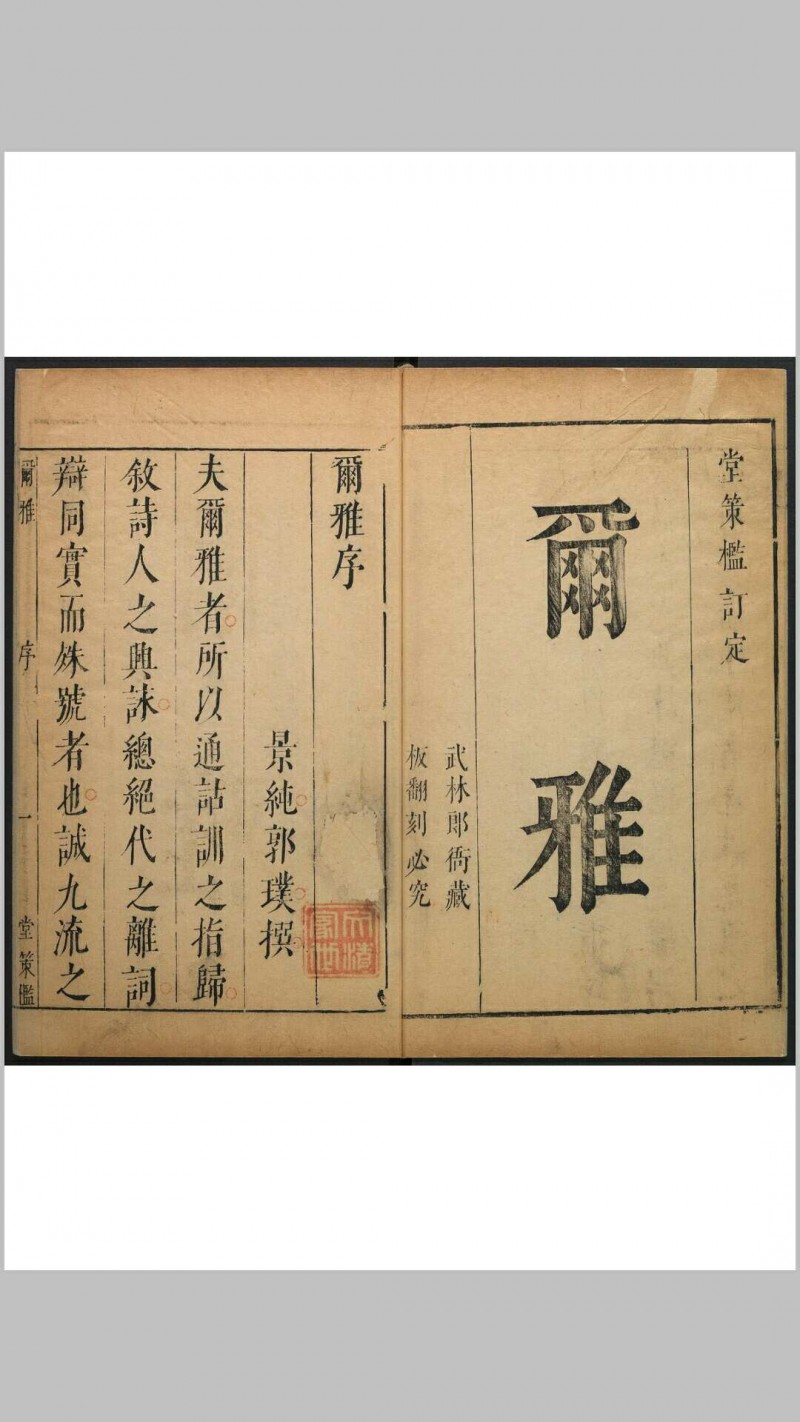 堂策檻訂定
爾雅
武林郎衙藏
板翻刻必究
爾雅序
景純郭璞撰
夫爾雅者所以通詁訓之指歸
敘詩人之興詠總絕代之離詞
辯同實而殊號者也誠九流之
爾雅 序 一 堂策檻